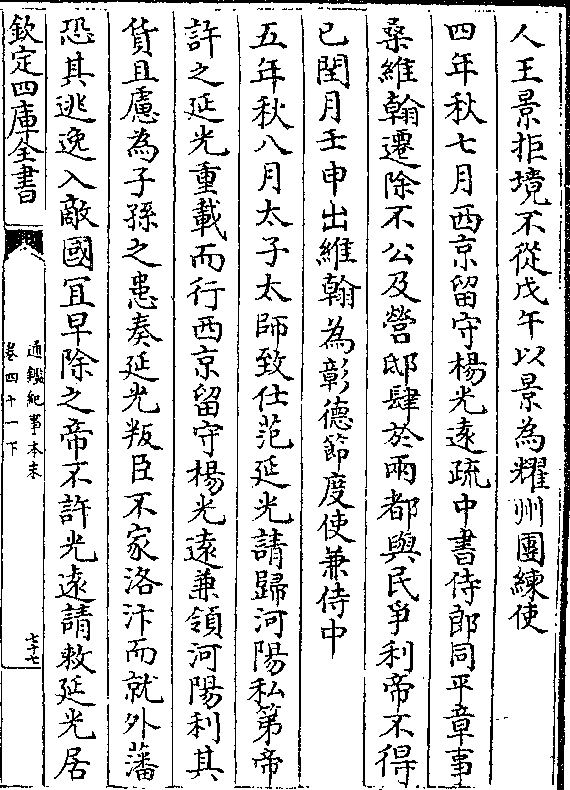 人王景拒境不從戊午以景為耀州團練使
四年秋七月西京留守楊光遠疏中書侍郎同平章事
桑維翰遷除不公及營邸肆於兩都與民爭利帝不得
已閏月壬申出維翰為彰德節度使兼侍中
五年秋八月太子太師致仕范延光請歸河陽私第帝
許之延光重載而行西京留守楊光遠兼領河陽利其
貨且慮為子孫之患奏延光叛臣不家洛汴而就外藩
恐其逃逸入敵國宜早除之帝不許光遠請敕延光居
欽定四庫全書
通鑑紀事本末
卷四十一下
七十七